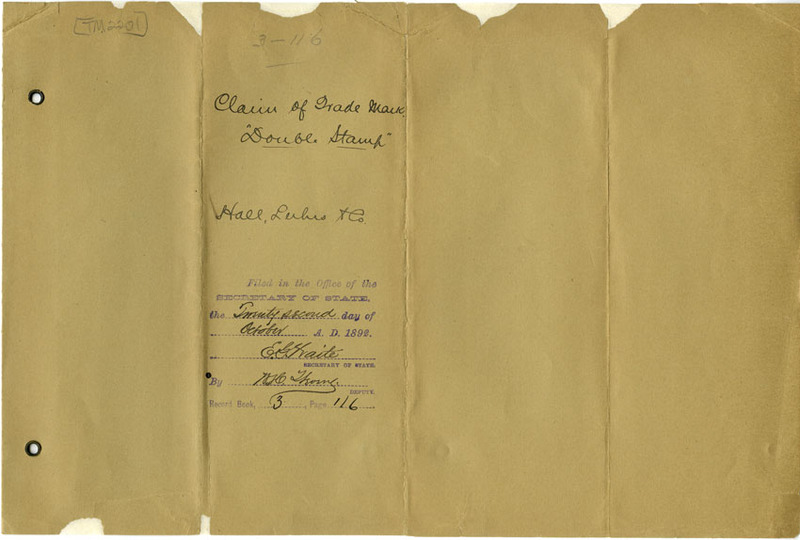 TM2201
3-116
Claim of Trade Mark,
"Double Stamp"
Hall, Luhrs & Co.
Filed in the Office of the
SECRETARY OF STATE,
the Twenty second day of
October A. D. 1892.
E.G. Waite
SECRETARY OF STATE.
By
DEPUTY.
Record Book, 3, Page 116